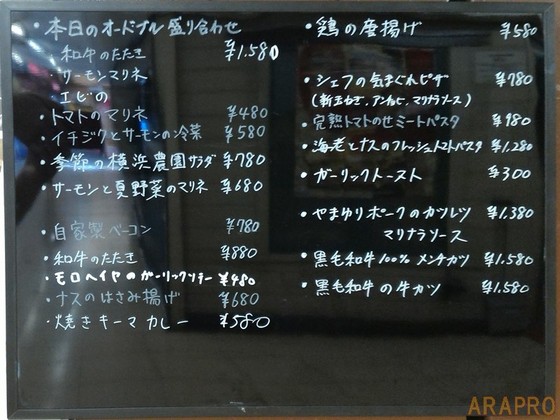 ・本日のオードブル盛り合わせ
和牛のたたき ¥1.580
・サーモンマリネ
・エビの
・トマトのマリネ ¥480
・イチジクとサーモンの冷菜 ¥580
・季節の横浜農園サラダ ¥780
・サーモンと夏野菜のマリネ ¥680
・自家製ベーコン ¥780
・和牛のたたき ¥880
・モロヘイヤのガーリックソテー ¥480
・ナスのはさみ揚げ ¥680
・焼きキーマカレー ¥580
・鶏の唐揚げ ¥580
・シェフの気まぐれピザ ¥780
(新玉ねぎ、アンチョビ、マリナラソース)
・完熟トマトのせミートパスタ ¥980
・海老とナスのフレッシュトマトパスタ ¥1.280
・ガーリックトースト ¥300
・やまゆりポークのカツレツ ¥1.380
マリナラソース
・黒毛和牛100%メンチカツ ¥1.580
・黒毛和牛の牛カツ ¥1.580
ARAPRO